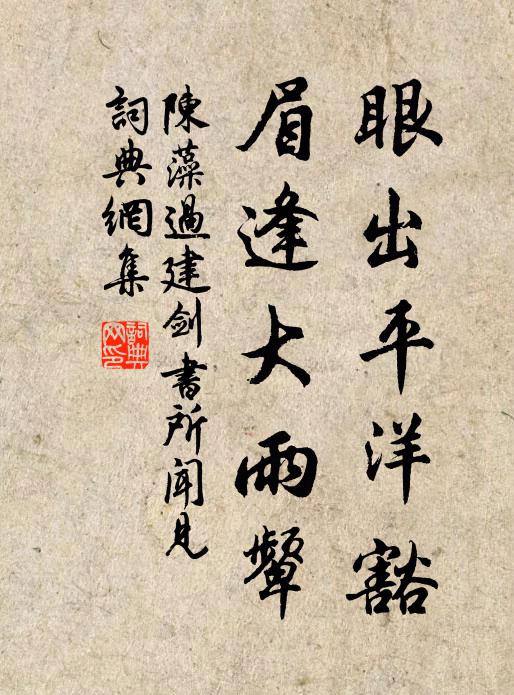 眼出平洋豁
眉逢大雨顰
陳藻過建劍書所聞見
詞典網集
詞典网印